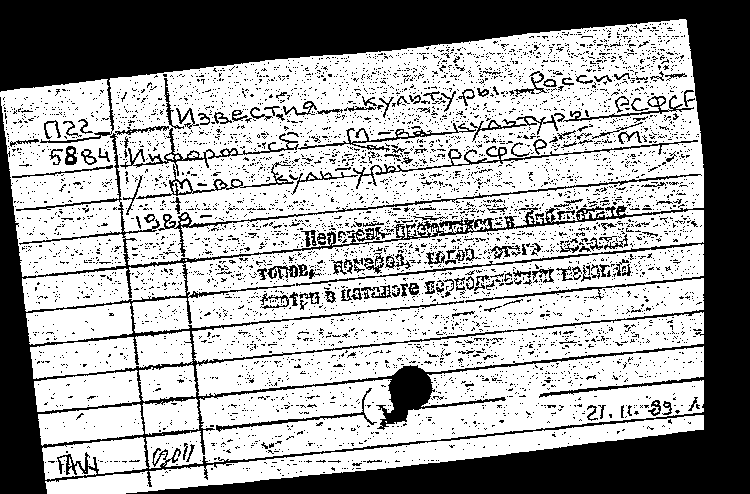 Известия культуры России.
П22
5884 Информ. сб. М-ва культуры РСФСР
/ М-во культуры РСФСР. — М.,
1989-
Перечень имеющихся в библиотеке
томов, номеров, годов этого издания
смотри в каталоге периодических изданий
21. II. 89.